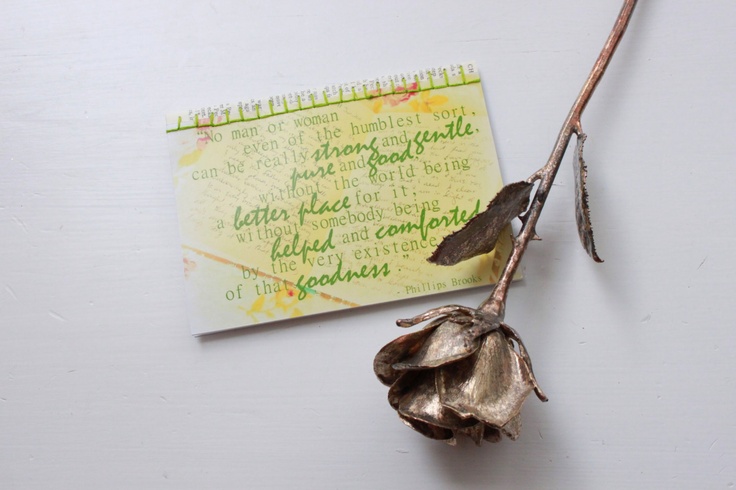 "No man or woman
even of the humblest sort,
can be really strong and gentle,
pure and good
without the world being
a better place for it;
without somebody being
helped and comforted
by the very existence
of that goodness."
- Phillips Brooks